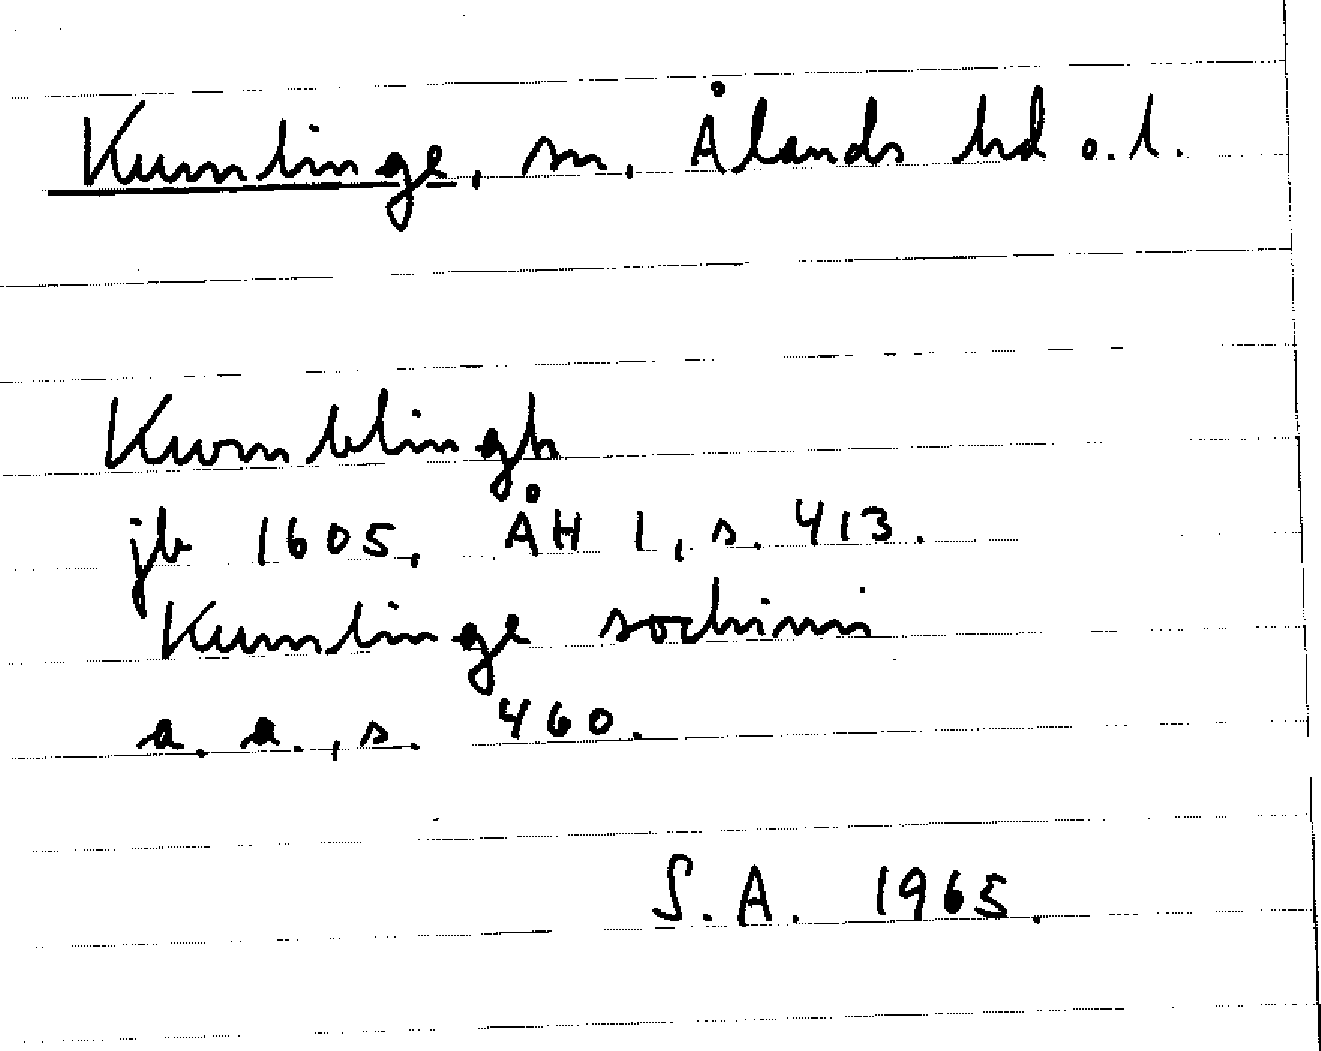 Kumlinge, sn, Ålands hd o. l.
Kwmblingh
jb 1605, ÅH I, s. 413.
Kumlinge sochnn
a. a., s. 460.
S. A. 1965.